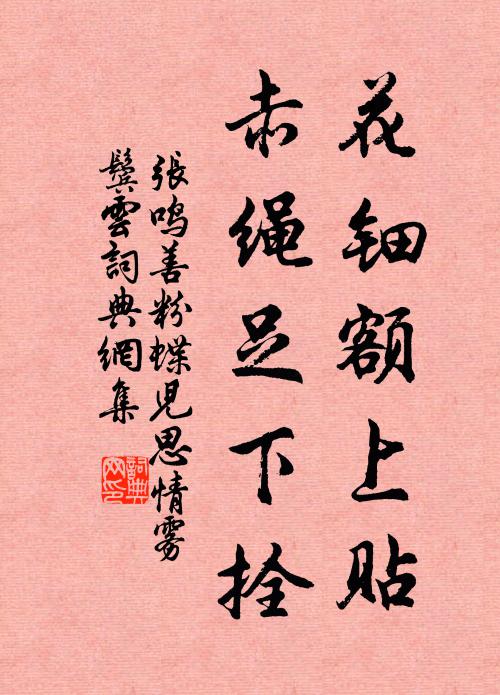 花钿额上贴
赤绳足下拴
張鳴善粉蝶兒思情雾
鬓雲詞典網集
詞典网印